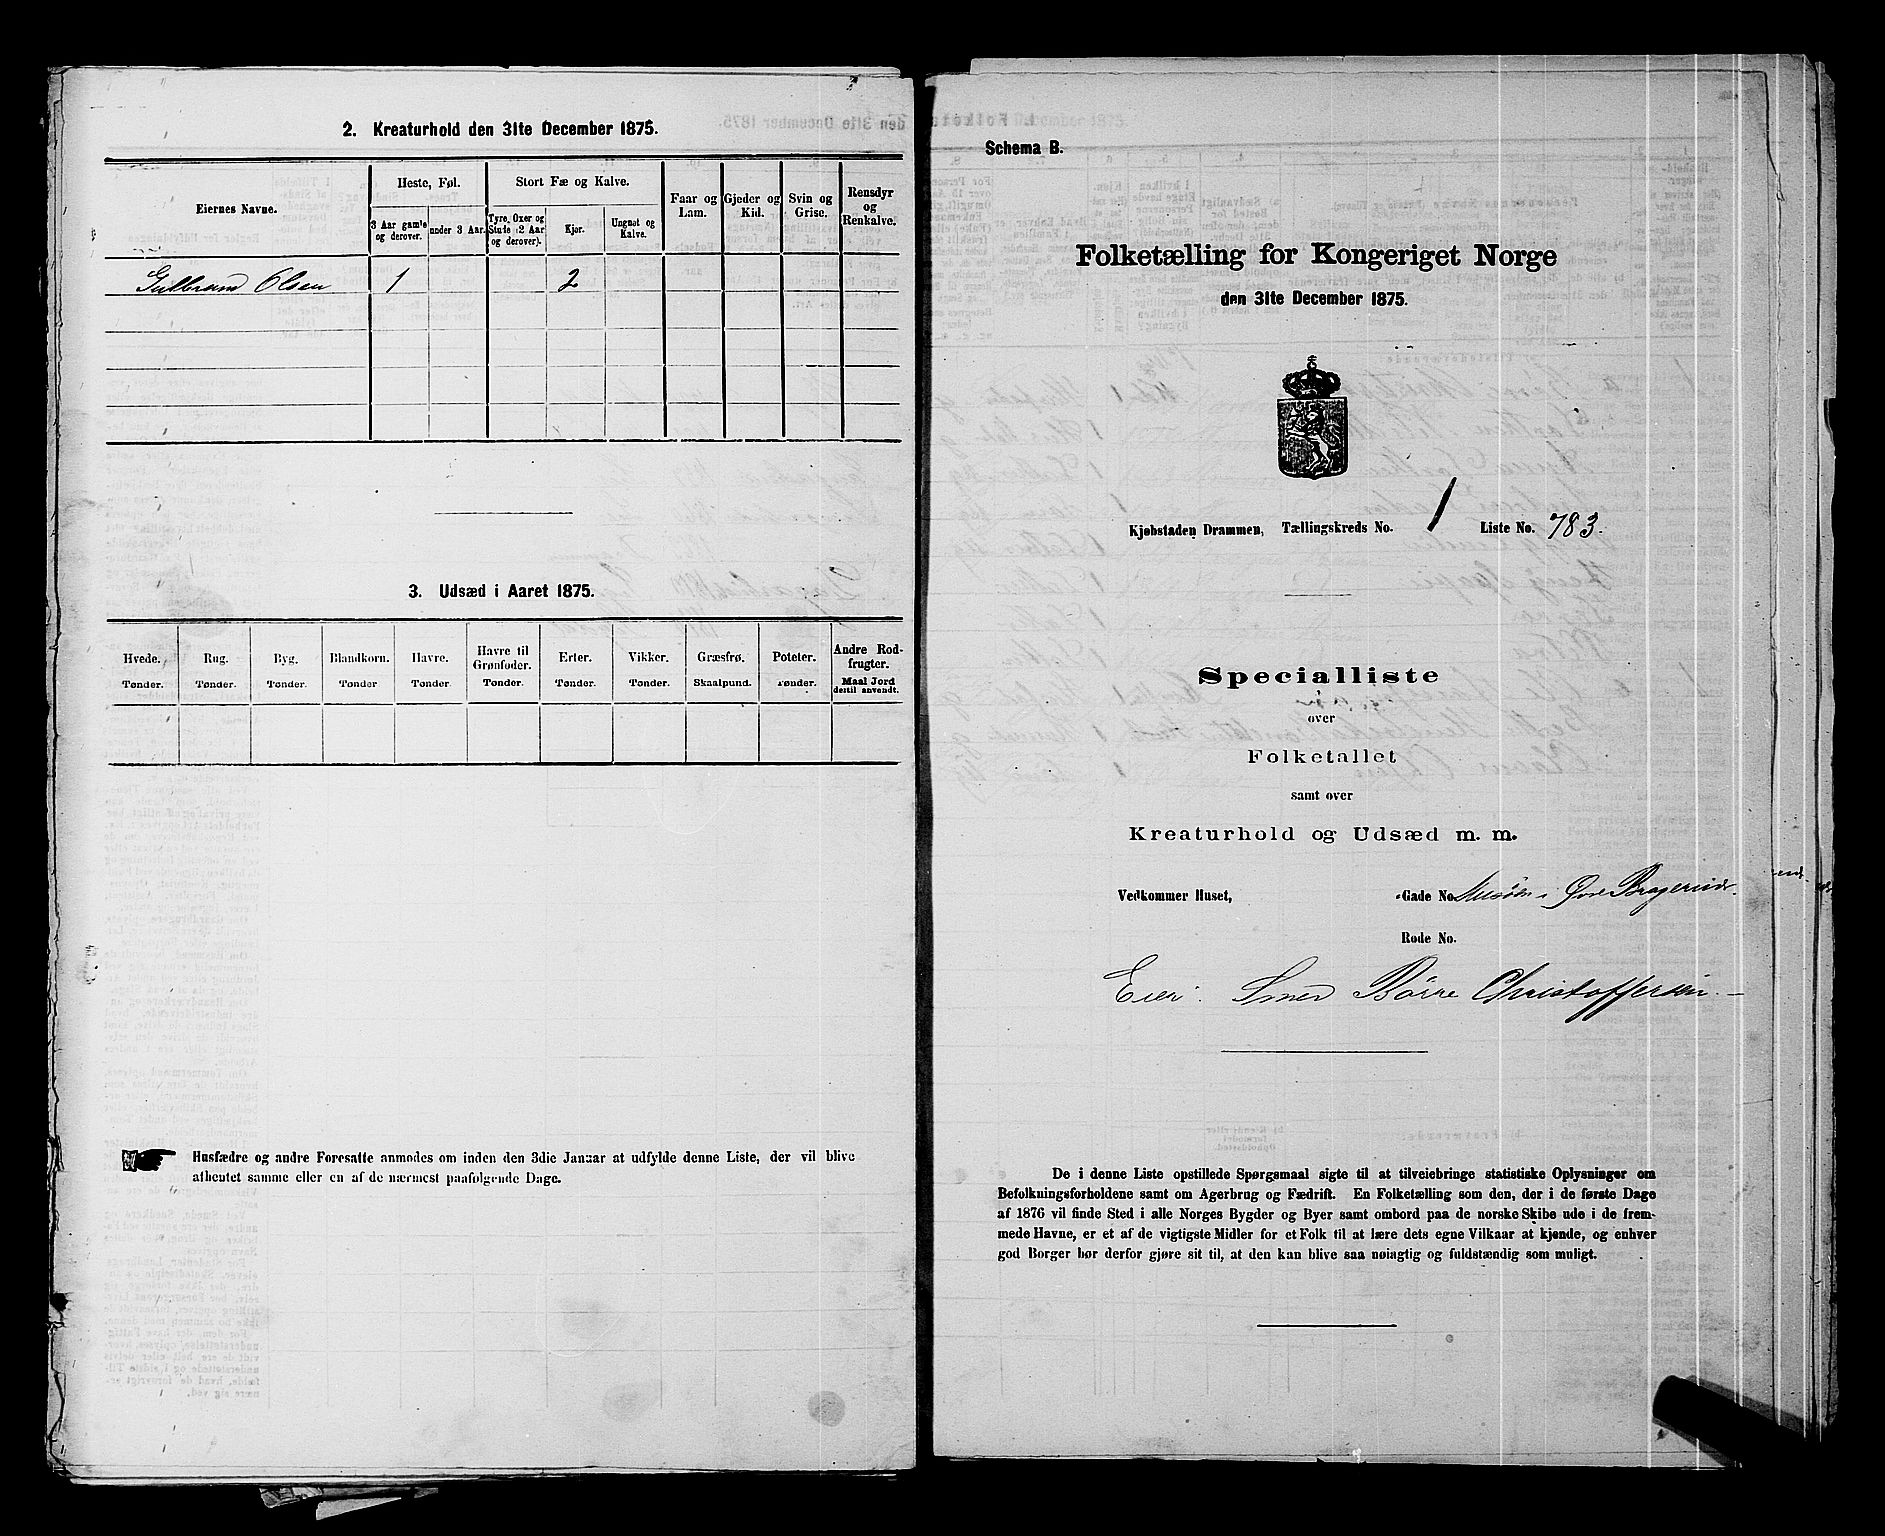 2. Kreaturhold den 31te December 1875.
Eiernes Navne.
Heste, Føl.
3 Aar gamle og derover.
under 3 Aar.
Stort Fæ og Kalve.
Tyre, Oxer og Stute (2 Aar og derover).
Kjør.
Ungnøt og Kalve.
Faar og Lam.
Gjeder og Kid.
Svin og Grise.
Rensdyr og Renkalve.
Gulbrand Olsen 1 2
3. Udsæd i Aaret 1875.
Hvede. Rug. Byg. Blandkorn. Havre. Havre til Grønfoder. Erter. Vikker. Græsfrø. Poteter. Andre Rodfrugter.
Tønder. Tønder. Tønder. Tønder Tønder. Tønder. Tønder. Tønder. Skaalpund. Tønder. Maal Jord dertil anvendt.
Husfædre og andre Foresatte anmodes om inden den 3die Januar at udfylde denne Liste, der vil blive
afhentet samme eller en af de nærmest paafølgende Dage.
Schema B.
Folketælling for Kongeriget Norge
den 31te December 1875.
Kjøbstaden Drammen, Tællingskreds No. 1 Liste No. 783.
Specialliste
over
Folketallet
samt over
Kreaturhold og Udsæd m. m.
Vedkommer Huset, Gade No. i Øvre Bragernes.
Rode No.
Eier. Smed Børre Christoffersen.
De i denne Liste opstillede Spørgsmaal sigte til at tilveiebringe statistiske Oplysninger om
Befolkningsforholdene samt om Agerbrug og Fædrift. En Folketælling som den, der i de første Dage
af 1876 vil finde Sted i alle Norges Bygder og Byer samt ombord paa de norske Skibe ude i de frem-
mede Havne, er et af de vigtigste Midler for et Folk til at lære dets egne Vilkaar at kjende, og enhver
god Borger bør derfor gjøre sit til, at den kan blive saa nøiagtig og fuldstændig som muligt.